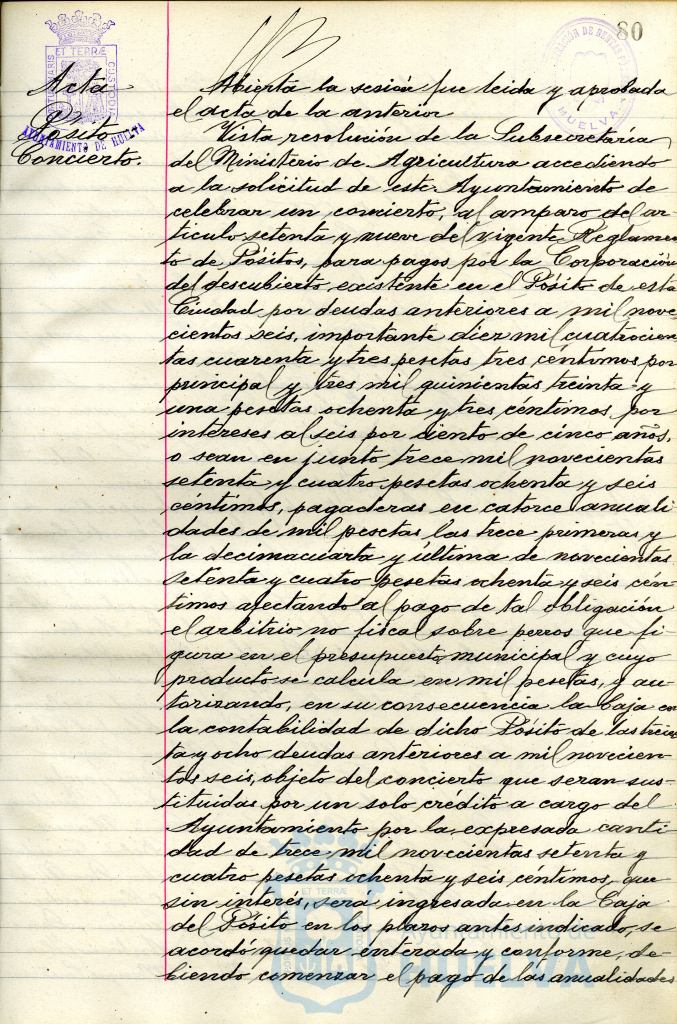 80
Acta
Pósito
Concierto.
AYUNTAMIENTO DE HUELVA
HUELVA
Abierta la sesión fue leida y aprobada
el acta de la anterior
Vista resolución de la Subsecretaría
del Ministerio de Agricultura accediendo
a la solicitud de este Ayuntamiento de
celebrar un concierto, al amparo del ar-
ticulo setenta y nueve del vigente Reglamen
to de Pósitos, para pagos por la Corporación
del descubierto existente en el Pósito de esta
Ciudad por deudas anteriores a mil nove
cientos seis, importante diez mil cuatrocien
tas cuarenta y tres pesetas tres céntimos por
principal y tres mil quinientas treinta y
una pesetas ochenta y tres céntimos por
intereses al seis por ciento de cinco años,
o sean en junto trece mil novecientas
setenta y cuatro pesetas ochenta y seis
céntimos, pagaderas en catorce anuali
dades de mil pesetas las trece primeras y
la decimacuarta y última de novecientas
setenta y cuatro pesetas ochenta y seis cén-
timos afectando al pago de tal obligación
el arbitrio no fiscal sobre perros que fi-
gura en el presupuesto municipal y cuyo
producto se calcula en mil pesetas, y au-
torizando, en su consecuencia la baja en
la contabilidad de dicho Pósito de las trein
ta y ocho deudas anteriores a mil novecien-
tos seis, objeto del concierto que seran sus-
tituidas por un solo crédito a cargo del
Ayuntamiento por la expresada canti-
dad de trece mil novecientas setenta y
cuatro pesetas ochenta y seis céntimos, que
sin interés, será ingresada en la Caja
del Pósito en los plazos antes indicado, se
acordó quedar enterada y conforme, de-
biendo comenzar el pago de las anualidades
ET TERRÆ
Ayuntamiento de
HUELVA